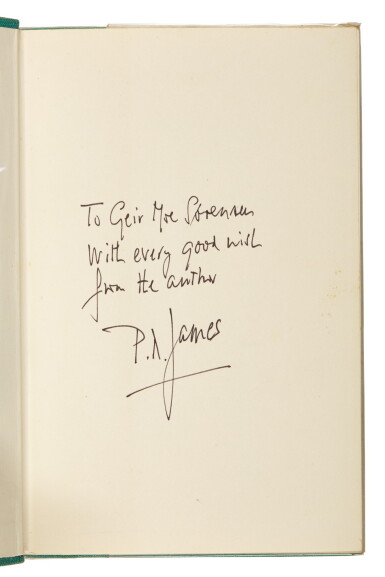 To Geir Moe Sørensen
With every good wish
from the author
P.D. James